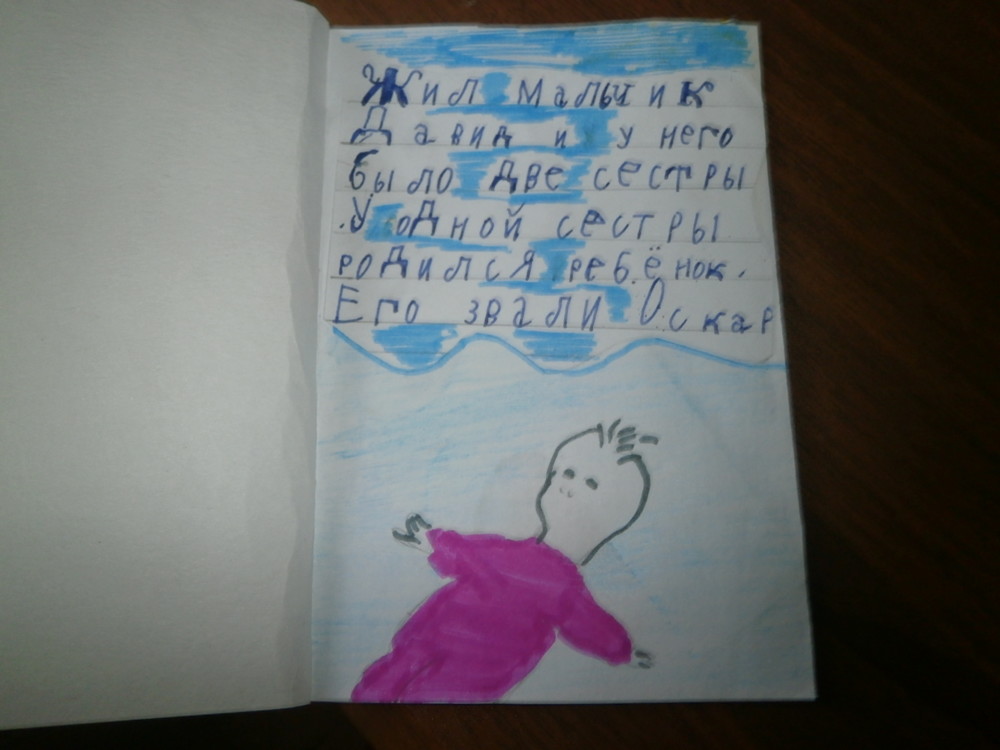 Жил мальчик
Давид и у него
было две сестры
.У одной сестры
родился ребёнок.
Его звали Оскар